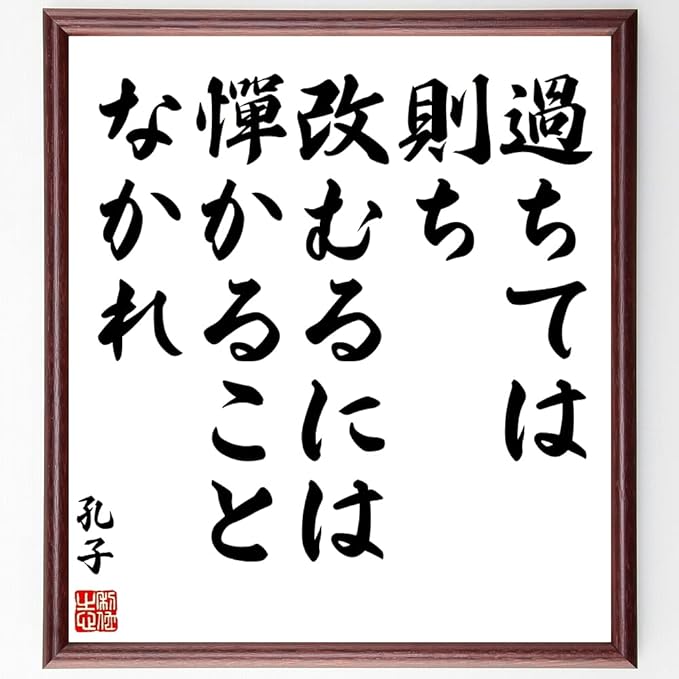 過ちては
則ち
改むるには
憚かること
なかれ
孔子